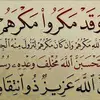 وَقَدْ مَكَرُوا مَكْرَهُمْ
اللَّهِ مَكْرُهُمْ وَإِنْ كَانَ مَكْرُهُمْ لِتَزُولَ مِنْهُ
اللَّهَ مُخْلِفَ وَعْدِهِ
اللَّهَ عَزِيزٌ ذُو انْتِقَامٍ